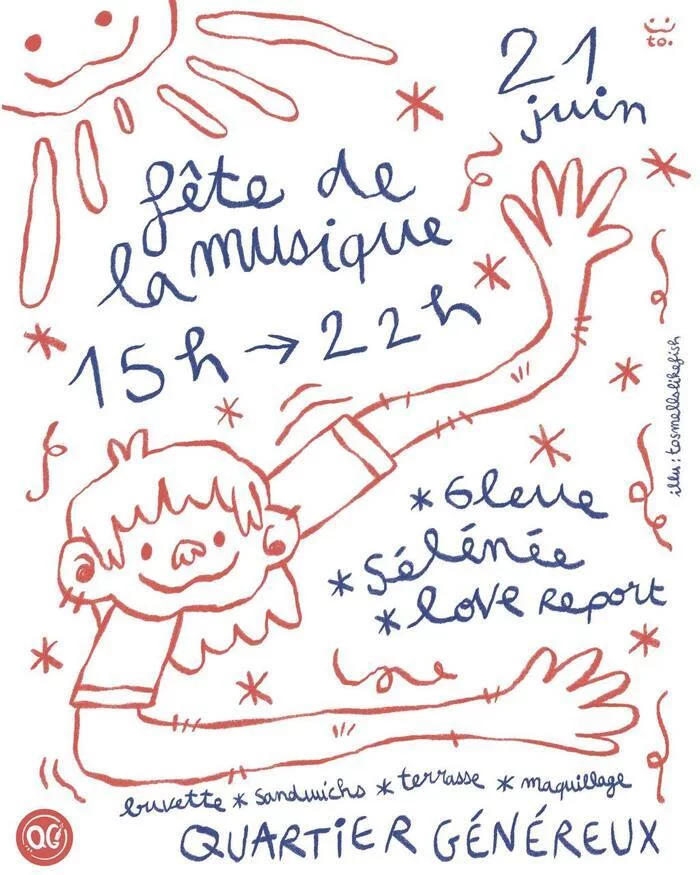 to.
21
juin
fête de
la musique
15h → 22h
illu: tosmellslikefish
* Gleue
* Sélénée
* love Report
buvette * sandwichs * terrasse * maquillage
QUARTIER GÉNÉREUX
QG